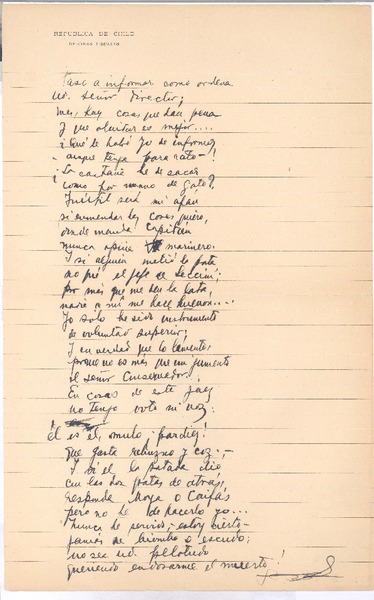 REPUBLICA DE CHILE
Paso a informar como ordena
Ud. señor Director;
mas, hay cosas que dan pena
y que olvidar es mejor....
¿Qué le habré yo de informar
- aunque tenga para rato-?
¿La castaña he de sacar
como por mano de gato?
Inútil será mi afán
si enmendar las cosas quiero,
donde manda Capitán
nunca opina marinero.
Y si alguien metió la pata
no fué el jefe de Sección:
por más que me den la lata,
nadie a mí me hace
Yo solo he sido instrumento
de voluntad superior;
y en verdad que lo lamento,
porque no es más que un jumento
el señor Conservador.
En cosas de este jaez
no tengo voto ni voz.
él es el mulo ¡pardiez!
que gasta rebuzno y coz;-
Y si él la patada dió
con las dos patas de atrás,
responda Moya o Caifás
pero no he de hacerlo yo...
Nunca he servido, estoy cierto
jamás de biombo o escudo;
no sea Ud. pelotudo
queriendo endosarme el muerto!